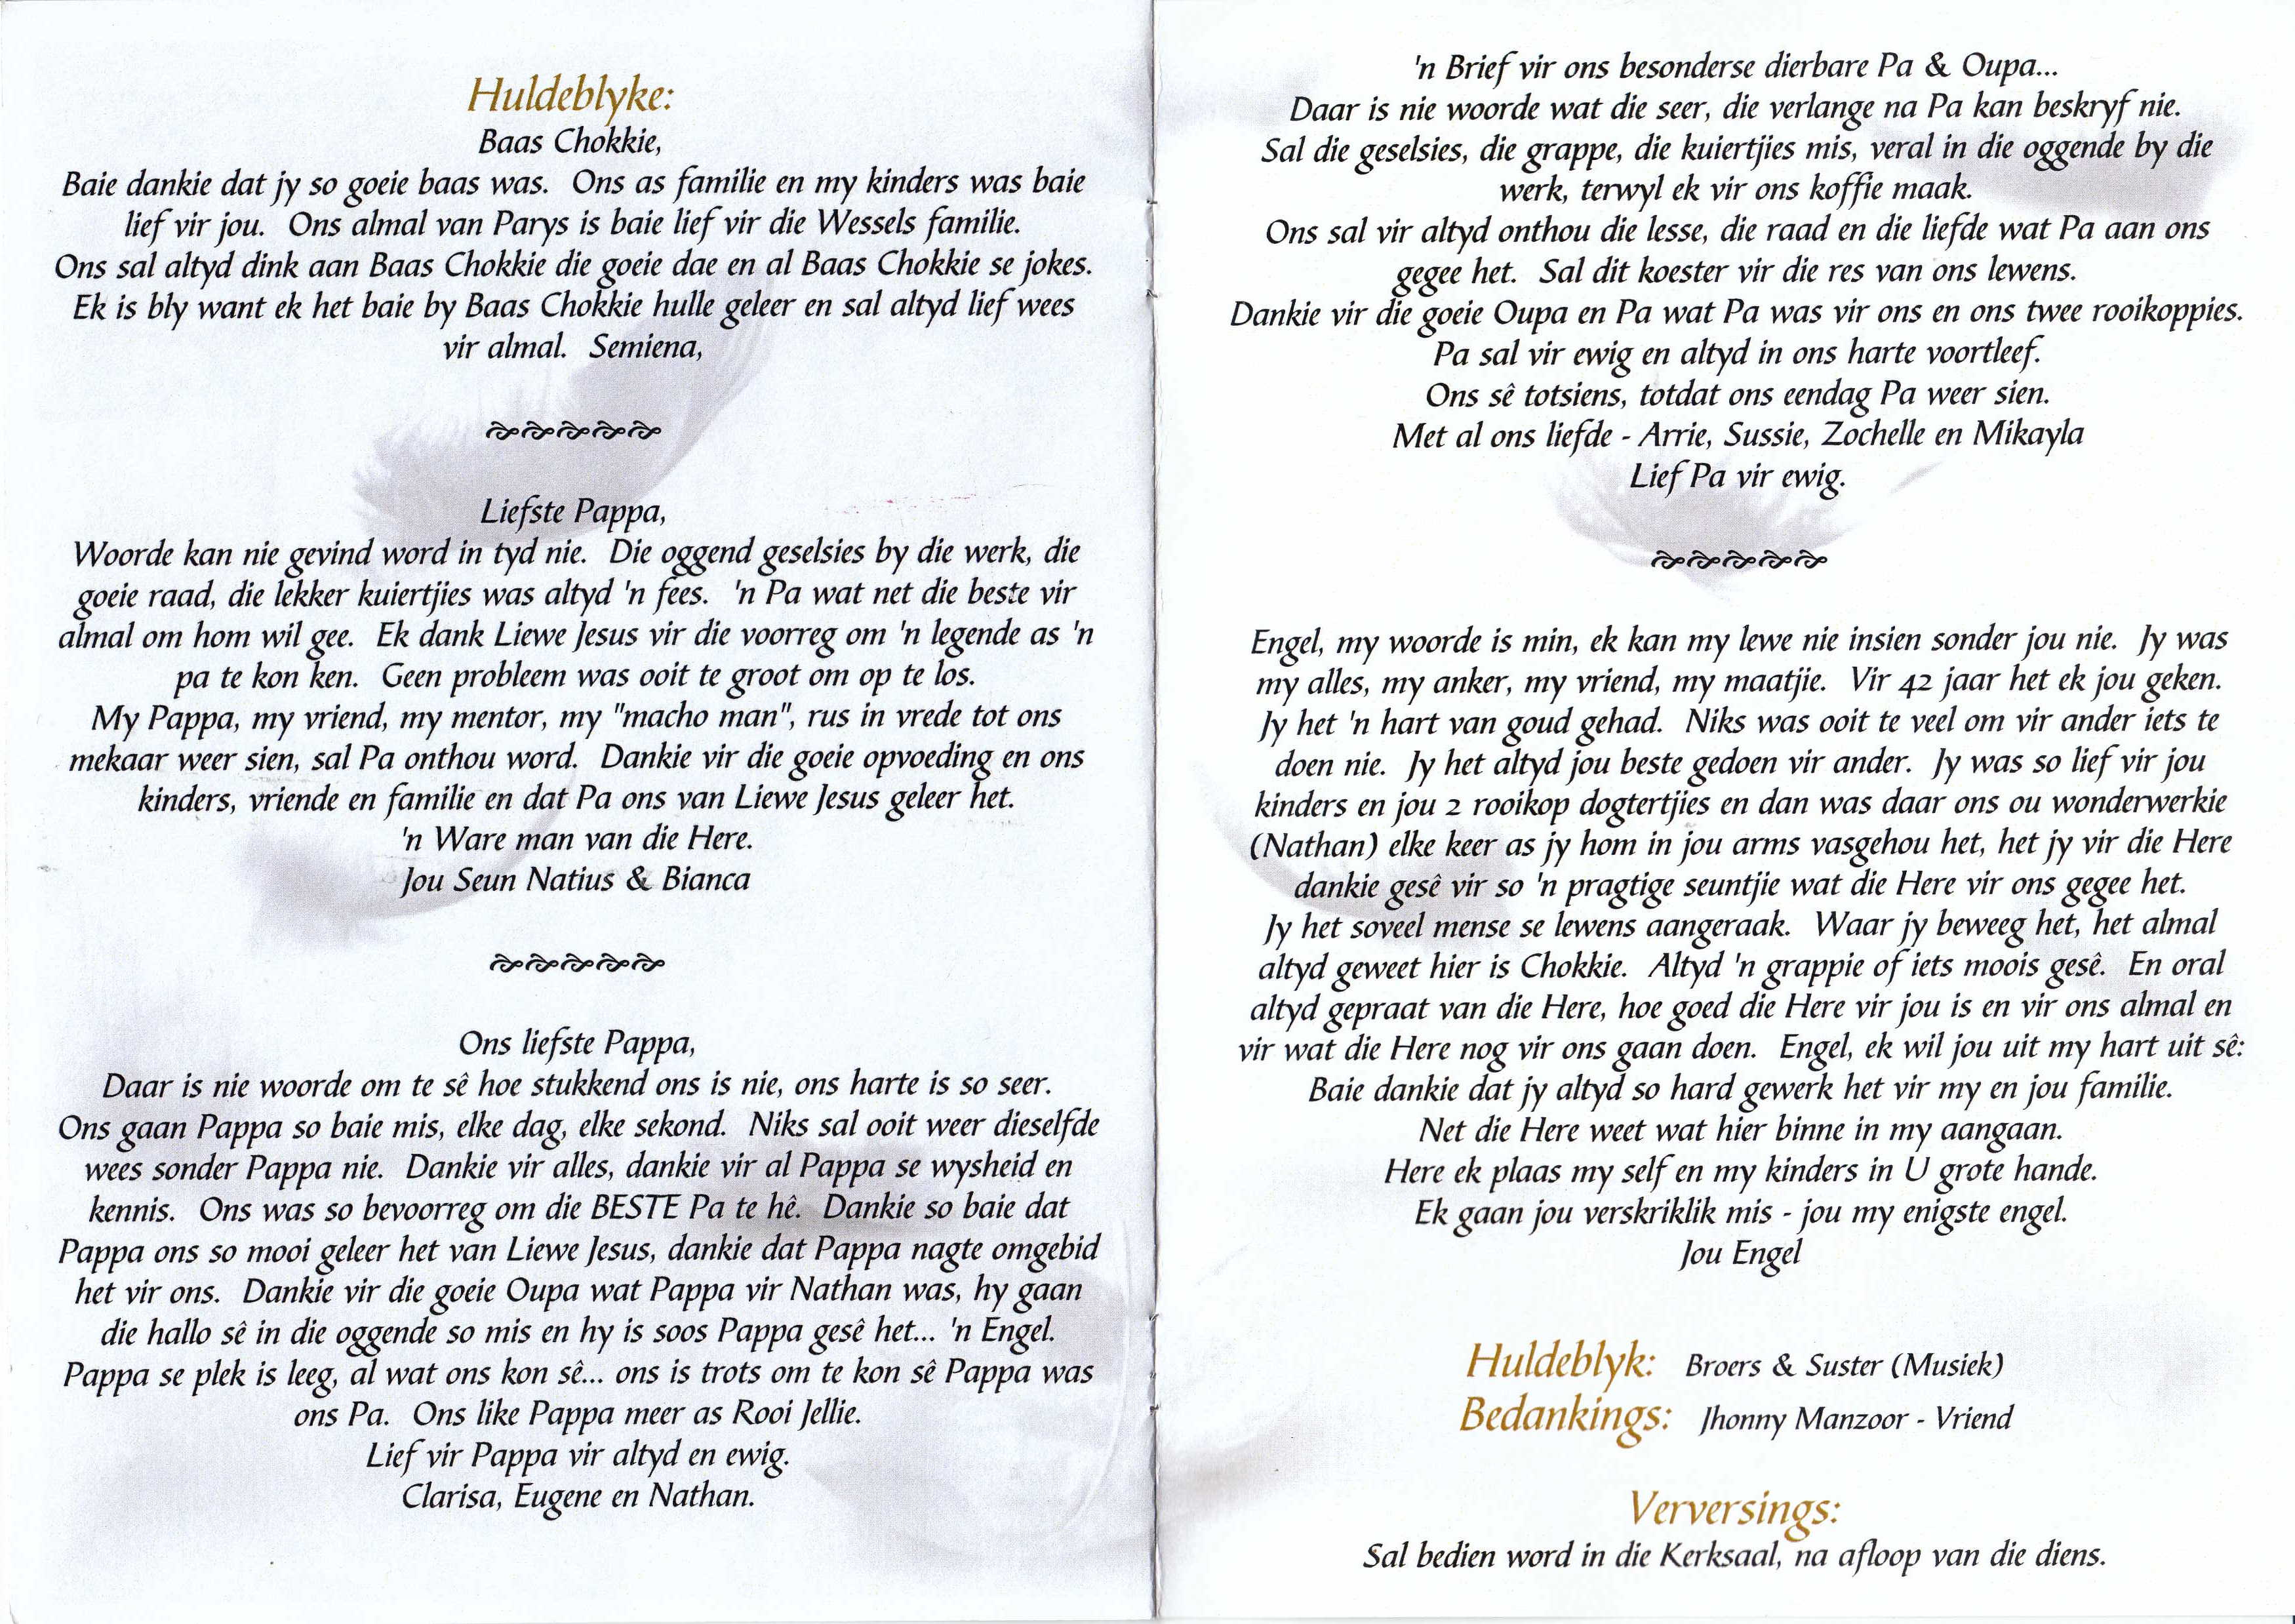 Huldeblyke:
Baas Chokkie,
Baie dankie dat jy so goeie baas was.  Ons as familie en my kinders was baie
lief vir jou.  Ons almal van Parys is baie lief vir die Wessels familie.
Ons sal altyd dink aan Baas Chokkie die goeie dae en al Baas Chokkie se jokes.
Ek is bly want ek het baie by Baas Chokkie hulle geleer en sal altyd lief wees
vir almal.  Semiena,
Liefste Pappa,
Woorde kan nie gevind word in tyd nie.  Die oggend geselsies by die werk, die
goeie raad, die lekker kuiertjies was altyd 'n fees.  'n Pa wat net die beste vir
almal om hom wil gee.  Ek dank Liewe Jesus vir die voorreg om 'n legende as 'n
pa te kon ken.  Geen probleem was ooit te groot om op te los.
My Pappa, my vriend, my mentor, my "macho man", rus in vrede tot ons
mekaar weer sien, sal Pa onthou word.  Dankie vir die goeie opvoeding en ons
kinders, vriende en familie en dat Pa ons van Liewe Jesus geleer het.
'n Ware man van die Here.
Jou Seun Natius & Bianca
Ons liefste Pappa,
Daar is nie woorde om te sê hoe stukkend ons is nie, ons harte is so seer.
Ons gaan Pappa so baie mis, elke dag, elke sekond.  Niks sal ooit weer dieselfde
wees sonder Pappa nie.  Dankie vir alles, dankie vir al Pappa se wysheid en
kennis.  Ons was so bevoorreg om die BESTE Pa te hê.  Dankie so baie dat
Pappa ons so mooi geleer het van Liewe Jesus, dankie dat Pappa nagte omgebid
het vir ons.  Dankie vir die goeie Oupa wat Pappa vir Nathan was, hy gaan
die hallo sê in die oggende so mis en hy is soos Pappa gesê het... 'n Engel.
Pappa se plek is leeg, al wat ons kon sê... ons is trots om te kon sê Pappa was
ons Pa.  Ons like Pappa meer as Rooi Jellie.
Lief vir Pappa vir altyd en ewig.
Clarisa, Eugene en Nathan.
'n Brief vir ons besonderse dierbare Pa & Oupa...
Daar is nie woorde wat die seer, die verlange na Pa kan beskryf nie.
Sal die geselsies, die grappe, die kuiertjies mis, veral in die oggende by die
werk, terwyl ek vir ons koffie maak.
Ons sal vir altyd onthou die lesse, die raad en die liefde wat Pa aan ons
gegee het.  Sal dit koester vir die res van ons lewens.
Dankie vir die goeie Oupa en Pa wat Pa was vir ons en ons twee rooikoppies.
Pa sal vir ewig en altyd in ons harte voortleef.
Ons sê totsiens, totdat ons eendag Pa weer sien.
Met al ons liefde - Arrie, Sussie, Zochelle en Mikayla
Lief Pa vir ewig.
Engel, my woorde is min, ek kan my lewe nie insien sonder jou nie.  Jy was
my alles, my anker, my vriend, my maatjie.  Vir 42 jaar het ek jou geken.
Jy het 'n hart van goud gehad.  Niks was ooit te veel om vir ander iets te
doen nie.  Jy het altyd jou beste gedoen vir ander.  Jy was so lief vir jou
kinders en jou 2 rooikop dogtertjies en dan was daar ons ou wonderwerkie
(Nathan) elke keer as jy hom in jou arms vasgehou het, het jy vir die Here
dankie gesê vir so 'n pragtige seuntjie wat die Here vir ons gegee het.
Jy het soveel mense se lewens aangeraak.  Waar jy beweeg het, het almal
altyd geweet hier is Chokkie.  Altyd 'n grappie of iets moois gesê.  En oral
altyd gepraat van die Here, hoe goed die Here vir jou is en vir ons almal en
vir wat die Here nog vir ons gaan doen.  Engel, ek wil jou uit my hart uit sê:
Baie dankie dat jy altyd so hard gewerk het vir my en jou familie.
Net die Here weet wat hier binne in my aangaan.
Here ek plaas my self en my kinders in U grote hande.
Ek gaan jou verskriklik mis - jou my enigste engel.
Jou Engel
Huldeblyk:  Broers & Suster (Musiek)
Bedankings:  Jhonny Manzoor - Vriend
Verversings:
Sal bedien word in die Kerksaal, na afloop van die diens.